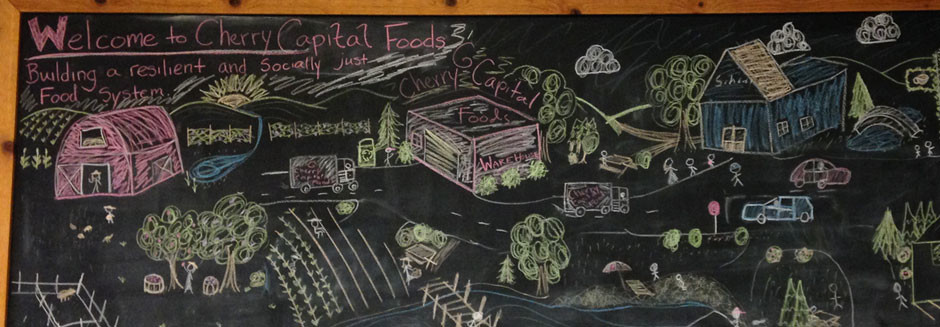 Welcome to Cherry Capital Foods
Building a resilient and Socially just
Food System.
Cherry Capital
Foods
School